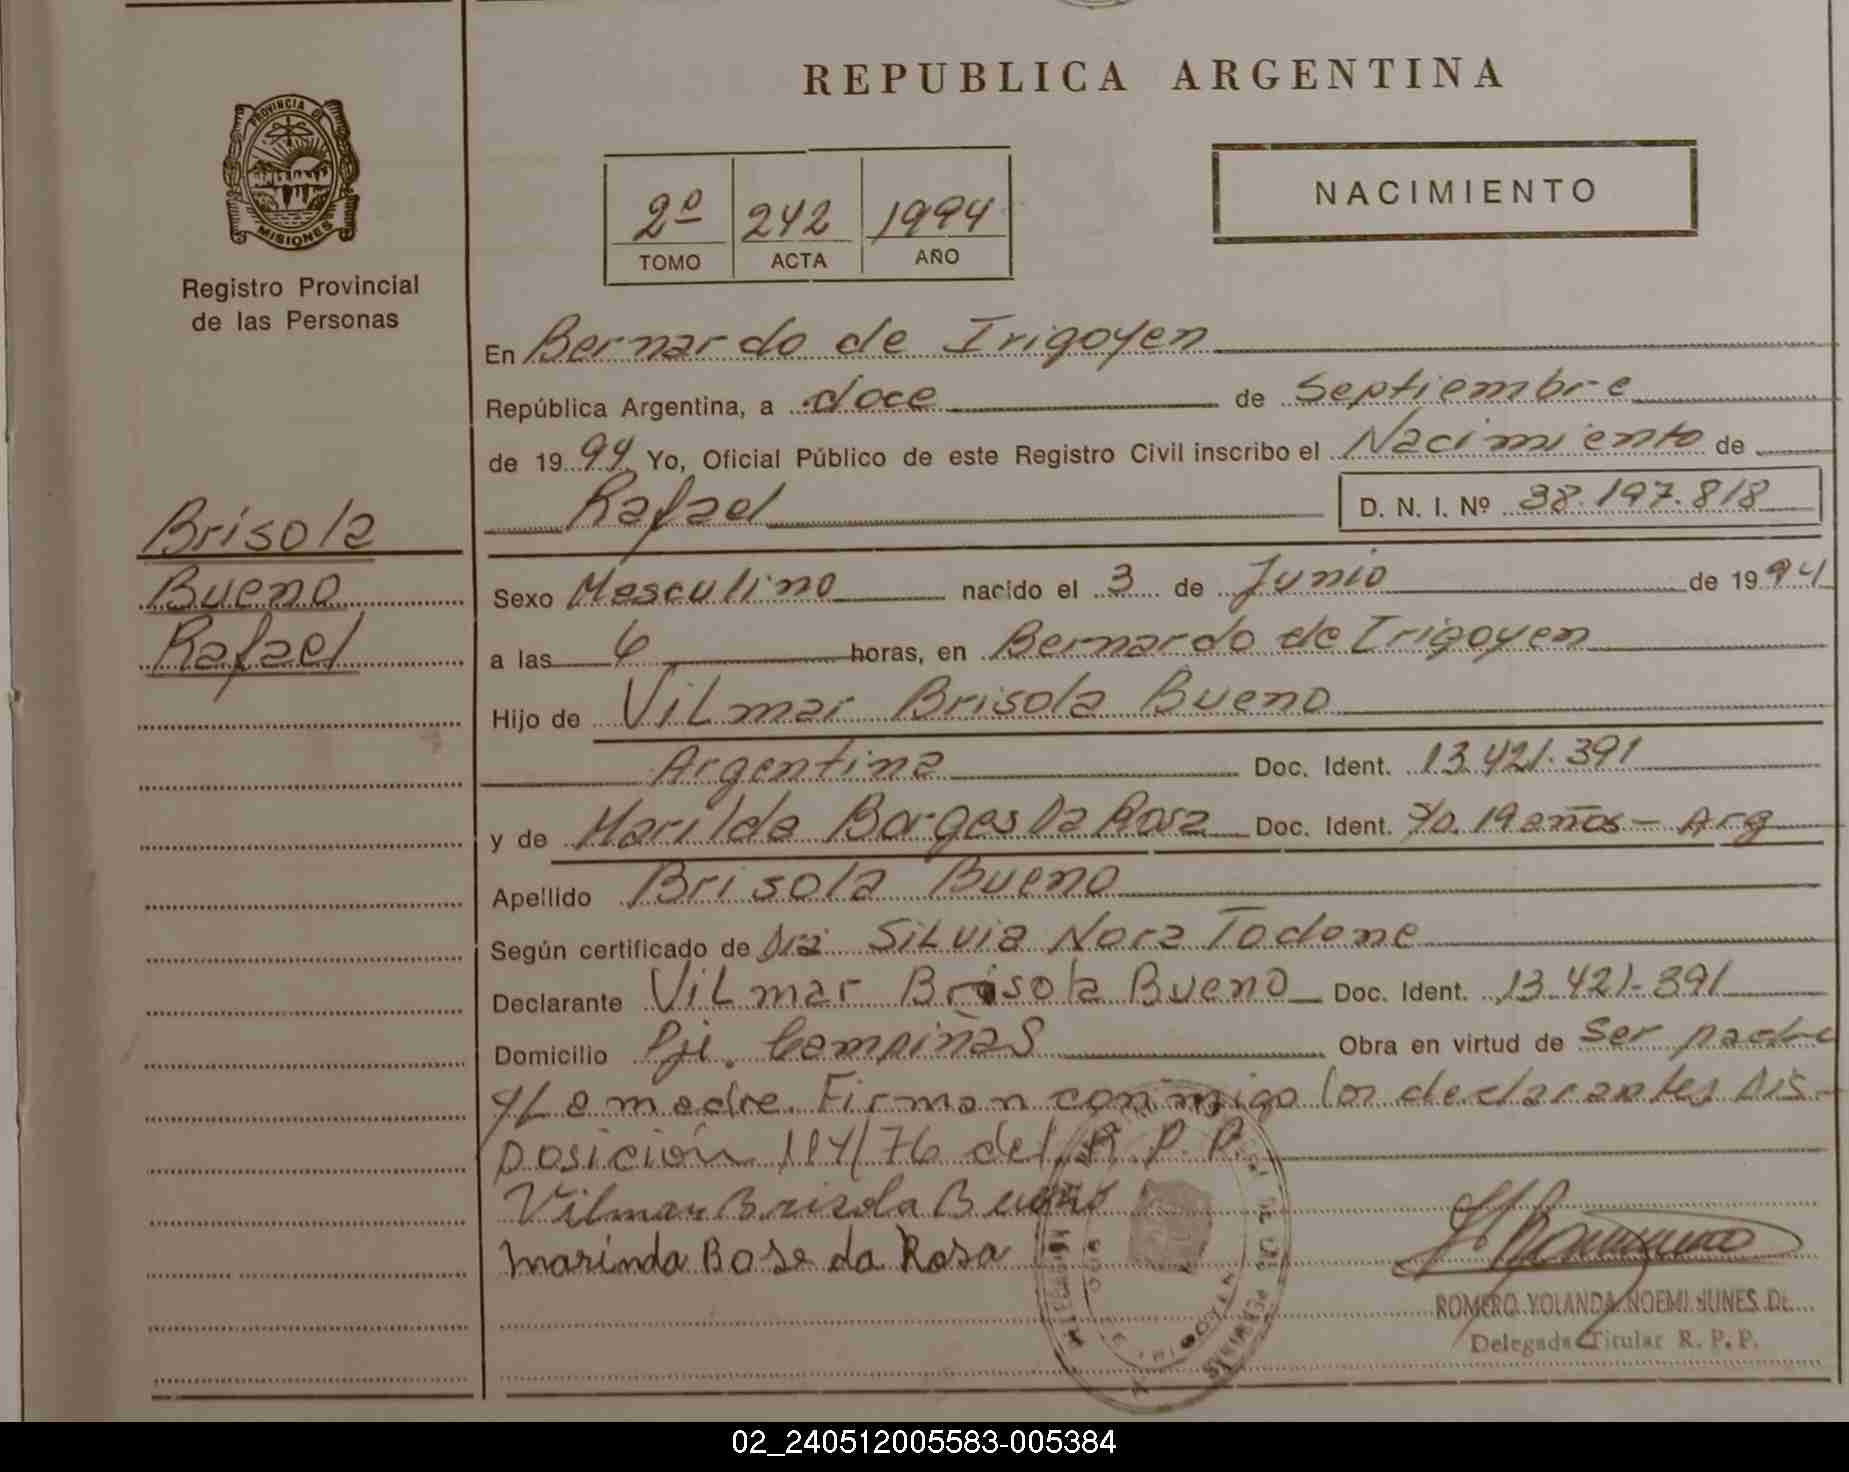 REPUBLICA ARGENTINA
PROVINCIA DE
MISIONES
Registro Provincial
de las Personas
2º 242 1994
TOMO ACTA AÑO
NACIMIENTO
En Bernardo de Irigoyen
República Argentina, a doce de Septiembre
de 1994 Yo, Oficial Público de este Registro Civil inscribo el Nacimiento de
Rafael D. N. I. Nº 38.197.818
Brisola
Bueno
Rafael
Sexo Masculino nacido el 3 de Junio de 1994
a las 6 horas, en Bernardo de Irigoyen
Hijo de Vilmar Brisola Bueno
Argentina Doc. Ident. 13.421.391
y de Marilda Borges Da Rosa Doc. Ident. 19 años - Arg
Apellido Brisola Bueno
Según certificado de Dra Silvia Nora Todone
Declarante Vilmar Brisola Bueno Doc. Ident. 13.421.391
Domicilio Pje. Campiñas Obra en virtud de ser padre
y La madre. Firman conmigo los declarantes Dis-
posición 114/76 del R. P. P.
Vilmar Brisola Bueno
Marinda Bose da Rosa
ROMERO YOLANDA NOEMI NUNES DE
Delegada Titular R. P. P.
02_240512005583-005384